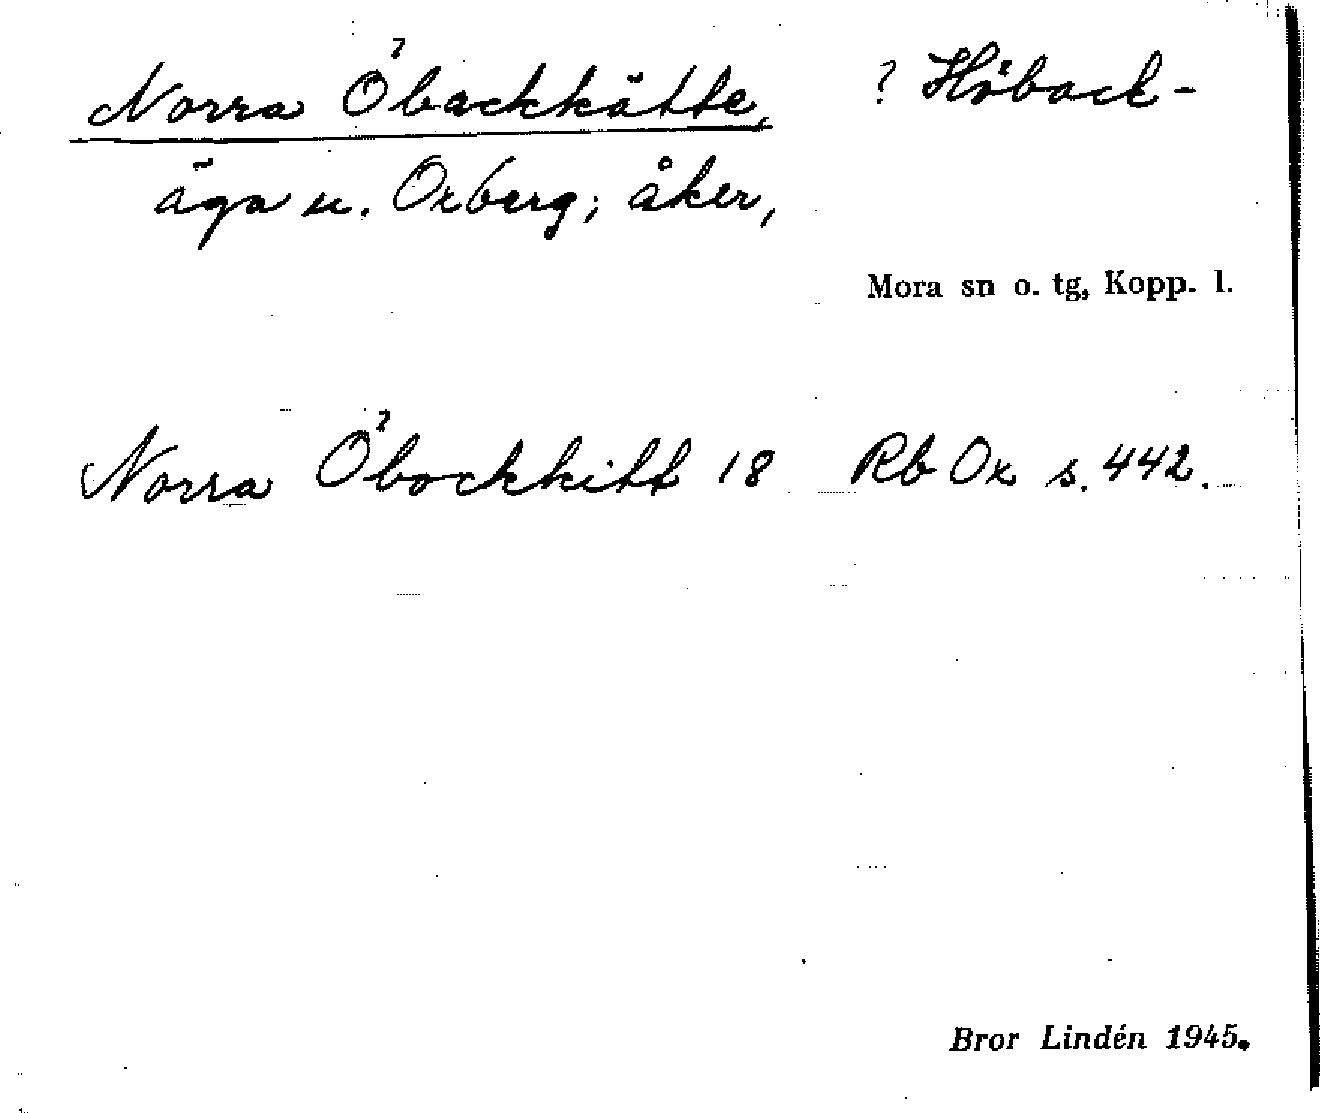 Norra Öbackkätte, ? Höback-
äga u. Oxberg; åker,
Mora sn o. tg, Kopp. l.
Norra Öbockkitt 18 Rb Ox s. 442.
Bror Lindén 1945.